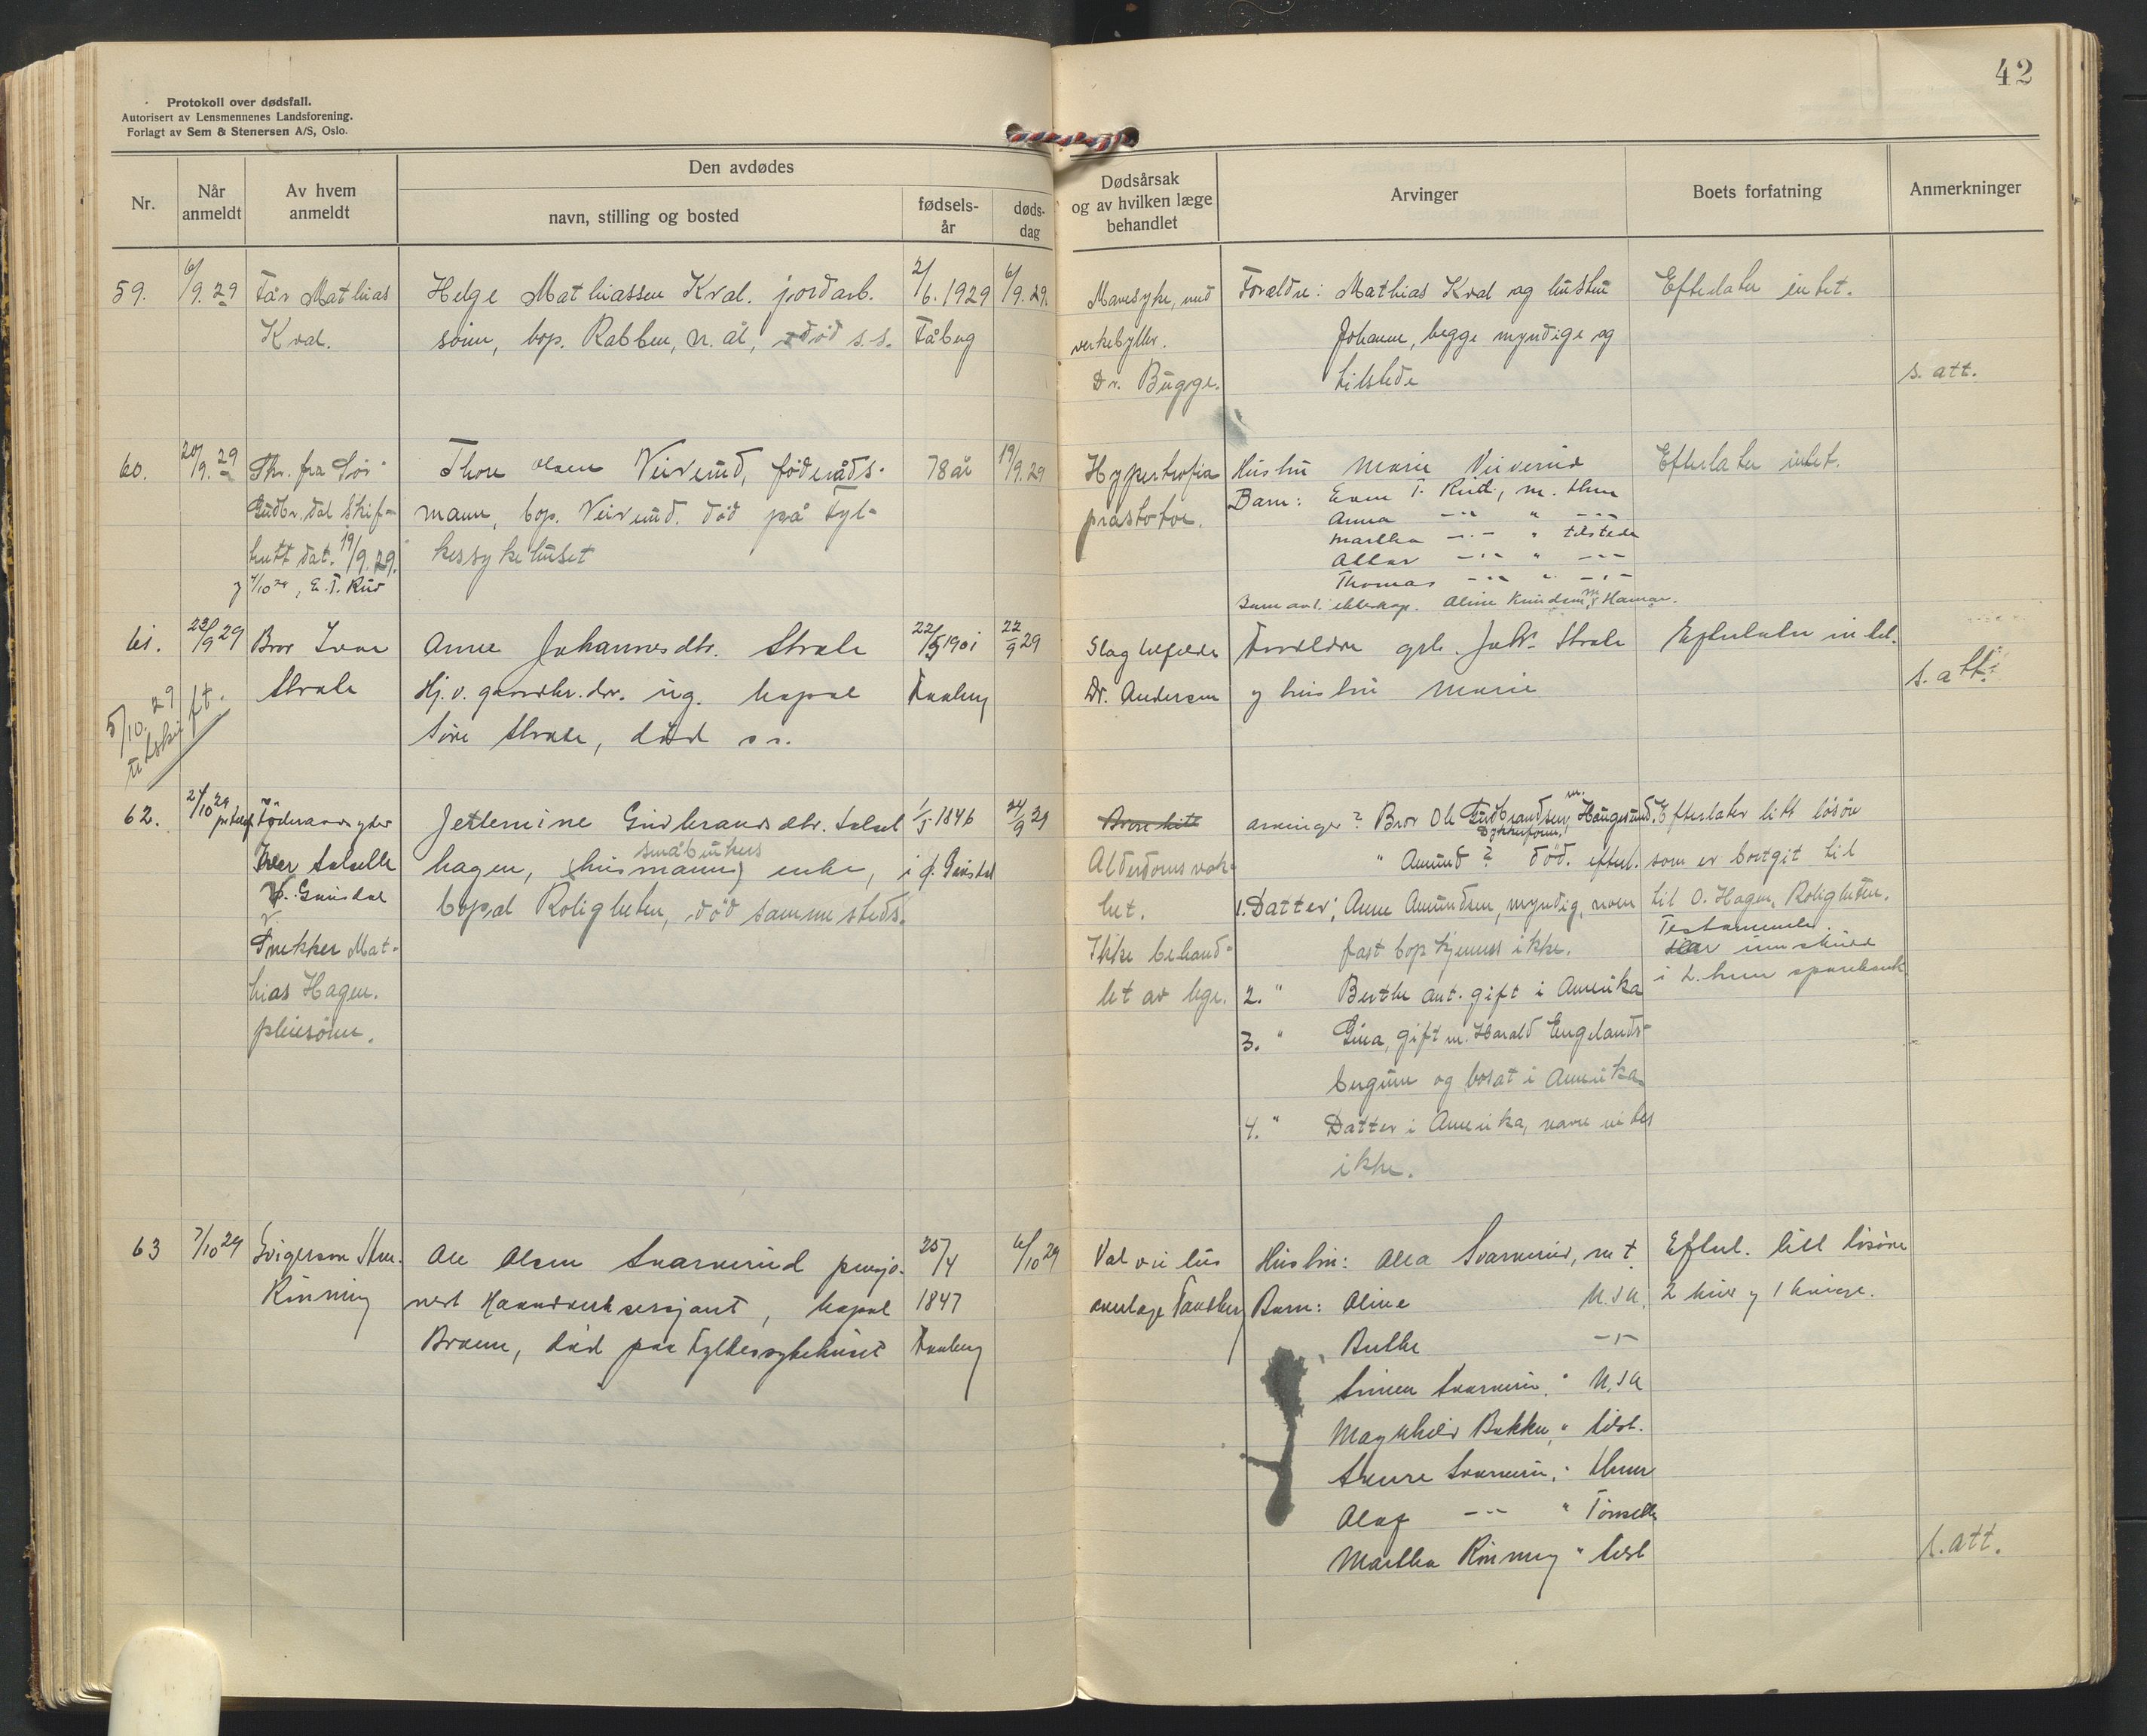 42
Protokoll over dødsfall.
Autorisert av Lensmennenes Landsforening.
Forlagt av Sem & Stenersen A/S, Oslo.
Nr.
Når anmeldt
Av hvem anmeldt
Den avdødes
navn, stilling og bosted
fødsels-
år
døds-
dag
Dødsårsak
og av hvilken læge
behandlet
Arvinger
Boets forfatning
Anmerkninger
59.
6/9.29
Far Mathias
Kval.
Helge Mathiassen Kval. jordarb.
sønn, bop. Rabben, n. ål, død s.s.
2/6.1929
Fåberg
6/9.29.
Mavesyke, med
verkebyller.
Dr. Bugge.
Foreldre: Mathias Kval og hustru
Johanne, begge myndige og
tilstede
Efterlater intet.
s. att.
60.
20/9.29
Skr. fra Sør
Gudbr.dal skif-
terett dat. 19/9.29.
E. T. Rud
Thore Olsen Veiverud, føderåds-
mann, bop. Veiverud. død på Fyl-
kessykehuset
78 år
19/9.29
Hypertrofia
prastatae.
Hustru Marie Veiverud
Barn: Even T. Rud, m. Lhmr
Anna -"- " -"-
Martha -"- " tilstede
Alvar -"- " -"-
Thomas -"- " -"-
Aline Knudsen, m. Hamar.
Efterlater intet.
61.
23/9 29
5/10.29
utskrift.
Bror Ivar
Strale
Anne Johannesdtr. Strale
Hj.v. gaardbr.dtr. ug. bopæl
Søre Strale, død s.s.
22/5 1901
Faaberg
22/9 29
Slagtilfelde
Dr. Andersen
Foreldre grb. Joh. Strale
og hustru Marie
Efterlater intet.
s. att.
62.
2/10 29
pr telef.
Føderaadsyder
Iver Salsell
V. Gausdal
Snekker Mat-
hias Hagen.
pleiesønn.
Jettemine Gudbrandsdtr. Salsel
hagen, (husmanns) enke,
småbrukers
bopæl Roligheten, død sammesteds.
1/5 1846
i Ø. Gausdal
24/9 29
Bronkitt
Alderdomssvak-
het.
Ikke behand-
let av lege.
arvinger? Bror Ole Gudbrandsen, m. Haugesund.
" Amund? død. efterl.
1. Datter: Anne Amundsen, myndig, noen
fast bop kjennes ikke.
2. " Berthe ant. gift i Amerika
3. " Gina, gift m. Harald Engelands-
bergum og bosat i Amerika
4. " Datter i Amerika, navn vites
ikke.
Efterlater litt løsøre
som er bortgit til
til O. Hagen, Roligheten.
Testamente.
Har innskudd
i L.hmr sparebank
63
7/10 29
Svigersøn
Rinning
Ole Olsen Svarverud pensjo-
nert Haandverksersjant, bopæl
Braen, død paa Fylkessykehuset
25/4
1847
Faaberg
6/10 29
Valvitis
overlæge Tandberg
Hustru: Olea Svarverud, m t.
Barn: Aline U.S.A.
Berthe -"-
Simen Svarverud " U.S.A
Magnhild Bakken, " tilst.
Sverre Svarverud, " Lhmr
Olaf -"- " Tønsetth
Martha Rinning " tilst
Efterl. litt løsøre
2 kuer og 1 kvige.
s. att.